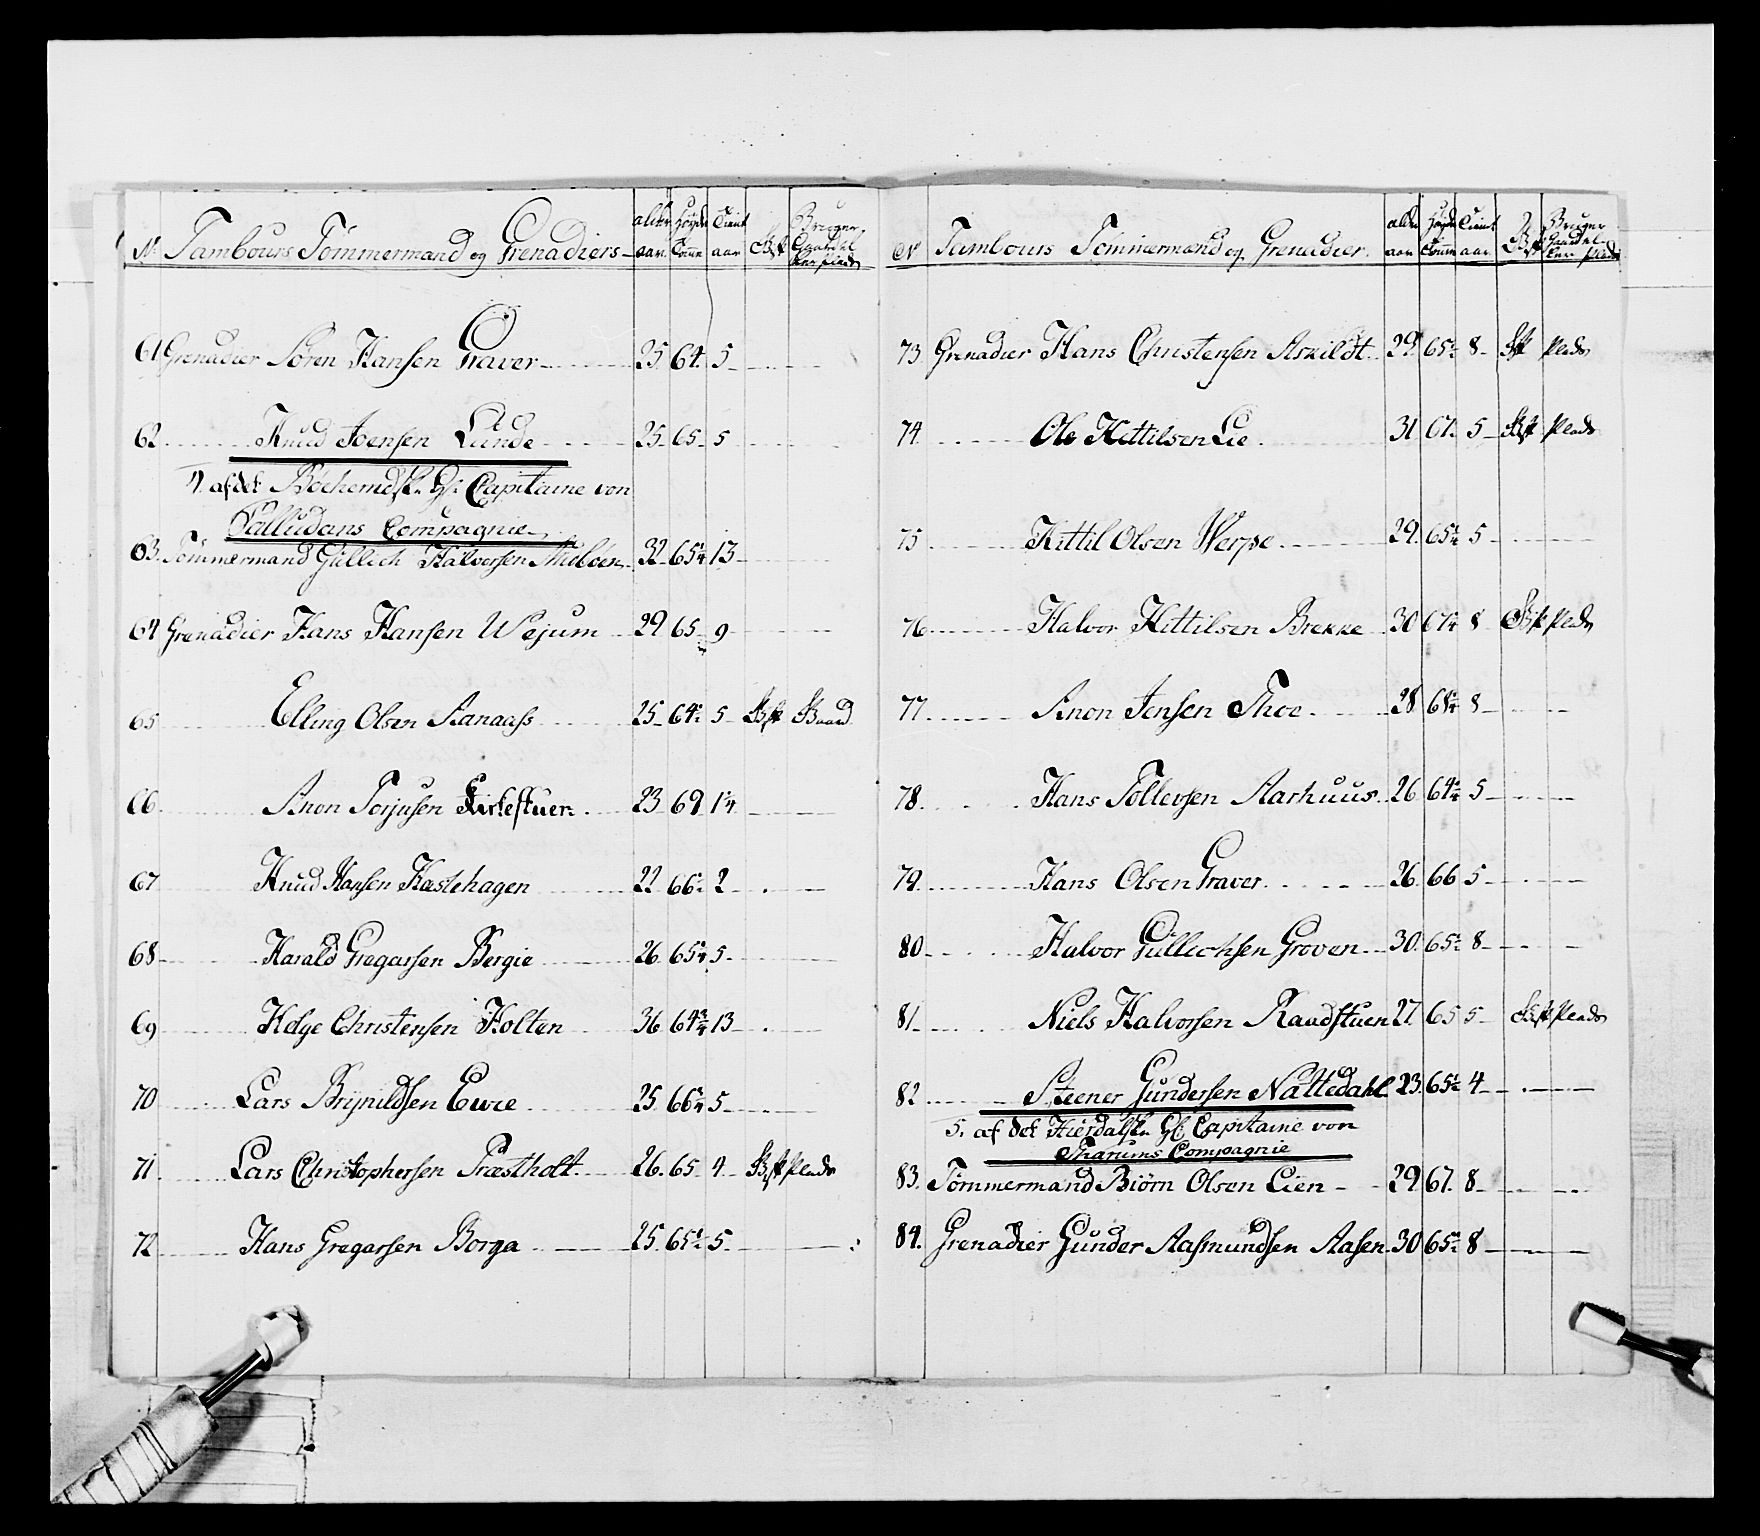 No Tambours Tömmermænd og Grenadiers alder aar Høyde Tomm Tient aar Gift Bruger Gaard el. Pladz
61 Grenadier Sören Hansen Graver 25 64 5
62 Knud Joensen Lunde 25 65 5
4 af det Böehemdske Gf: Capitaine von
Palludans Compagnie
63 Tömmermand Gullich Halvorsen Moldon 32 65¼ 13
64 Grenadier Hans Hansen Wejum 29 65 9
65 Elling Olsen Aanaass 25 64½ 5 Gift Gaard
66 Anon Torjusen Kirkestuen 23 69 1¼
67 Knud Hansen Hastehagen 22 66½ 2
68 Harald Gregarsen Bergie 26 65¼ 5
69 Helge Christensen Holten 36 64¾ 13
70 Lars Brynildsen Ewie 25 66¼ 5
71 Lars Christophersen Præstholt 26 65 4 Gift Plads
72 Hans Gregarsen Borga 25 65½ 5
No Tambours Tömmermænd og Grenadier alder aar Høyde Tomm Tient aar Gift Bruger Gaard el. Pladz
73 Grenadier Hans Christensen Askildt 29 65½ 8 Gift Plads
74 Ole Kittilsen Lie 31 67 5 Gift Plads
75 Kittil Olsen Werpe 29 65¼ 5
76 Halvor Kittilsen Brekke 30 67¼ 8 Gift Plads
77 Anon Jensen Thoe 28 68¼ 8
78 Hans Tollevsen Aarhuus 26 64¼ 5
79 Hans Olsen Graver 26 66 5
80 Halvor Gullichsen Groven 30 65½ 8
81 Niels Halvorsen Raadstuen 27 65 5 Gift Plads
82 Steener Gundersen Nattedahl 23 65½ 4
5. af det Hierdalske Gf. Capitaine von
Tharums Compagnie
83 Tömmermand Biörn Olsen Lien 29 67 8
84 Grenadier Gunder Aasmundsen Aasen 30 65¾ 8